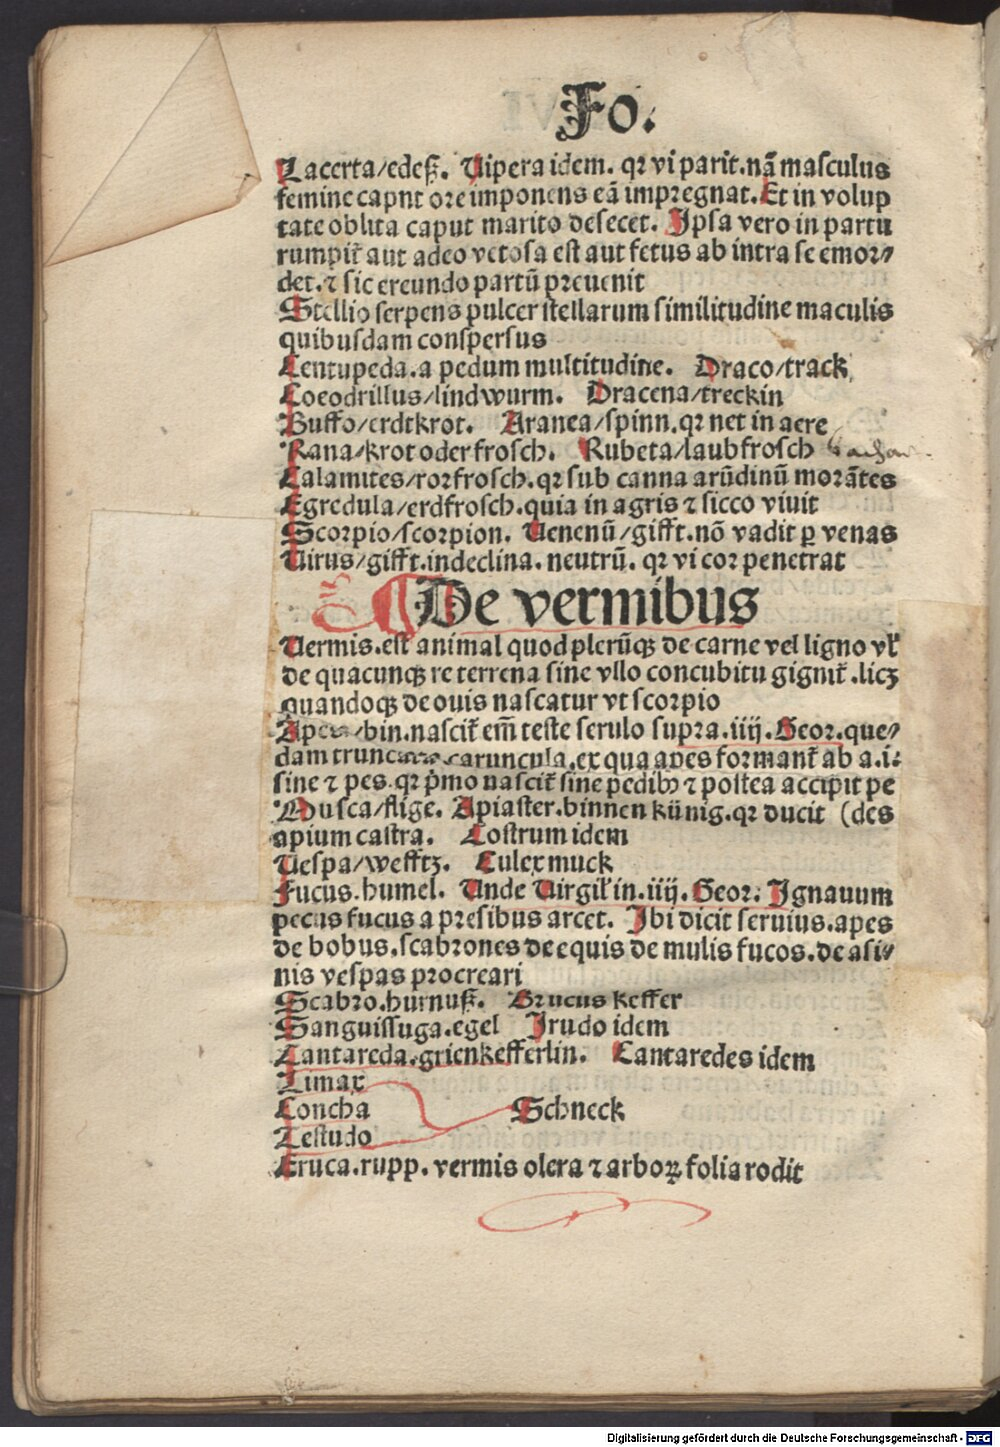 Fo.
Lacerta/edeß. Uipera idem. qꝛ vi parit. nā masculus
femine capnt ore imponens eā impregnat. Et in volup
tate oblita caput marito desecet. Ipsa vero in partu
rumpit̄ aut adeo vetosa est aut fetus ab intra se emor/
det. ⁊ sic ereundo partū preuenit
Stellio serpens pulcer stellarum similitudine maculis
quibusdam conspersus
Centupeda. a pedum multitudine. Draco/track
Cocodrillus/lindwurm. Dracena/treckin
Buffo/erdtkrot. Aranea/spinn. qꝛ net in aere
Rana/krot oder frosch. Rubeta/laubfrosch
Calamites/rorfrosch. qꝛ sub canna arūdinū morātes
Egredula/erdfrosch. quia in agris ⁊ sicco viuit
Scorpio/scorpion. Uenenū/gifft. nō vadit ꝑ venas
Uirus/gifft. indeclina. neutrū. qꝛ vi cor penetrat
De vermibus
Uermis. est animal quod plerūqꝫ de carne vel ligno vl̕
de quacunqꝫ re terrena sine vllo concubitu gignit̄. licꝫ
quandoqꝫ de ouis nascatur vt scorpio
Apes/bin. nascit̄ em̄ teste serulo supra. iiij. Geor. que/
dam trunc caruncula. ex qua apes formant̄ ab a. i:
sine ⁊ pes. qꝛ p̄mo nascit̄ sine pedibꝫ ⁊ postea accipit pe
Musca/flige. Apiaster. binnen künig. qꝛ ducit (des
apium castra. Costrum idem
Uespa/wefftz. Culex muck
Fucus. humel. Unde Uirgil̕ in. iiij. Geor: Ignauum
pecus fucus a presibus arcet. Ibi dicit seruius. apes
de bobus. scabrones de equis de mulis fucos. de asi/
nis vespas procreari
Scabro. hurnuß. Brucus keffer
Sanguissuga. egel Irudo idem
Cantareda. grienkefferlin. Cantaredes idem
Limax
Concha Schneck
Testudo
Eruca. rupp. vermis olera ⁊ arboꝝ folia rodit
Digitalisierung gefördert durch die Deutsche Forschungsgemeinschaft - DFG